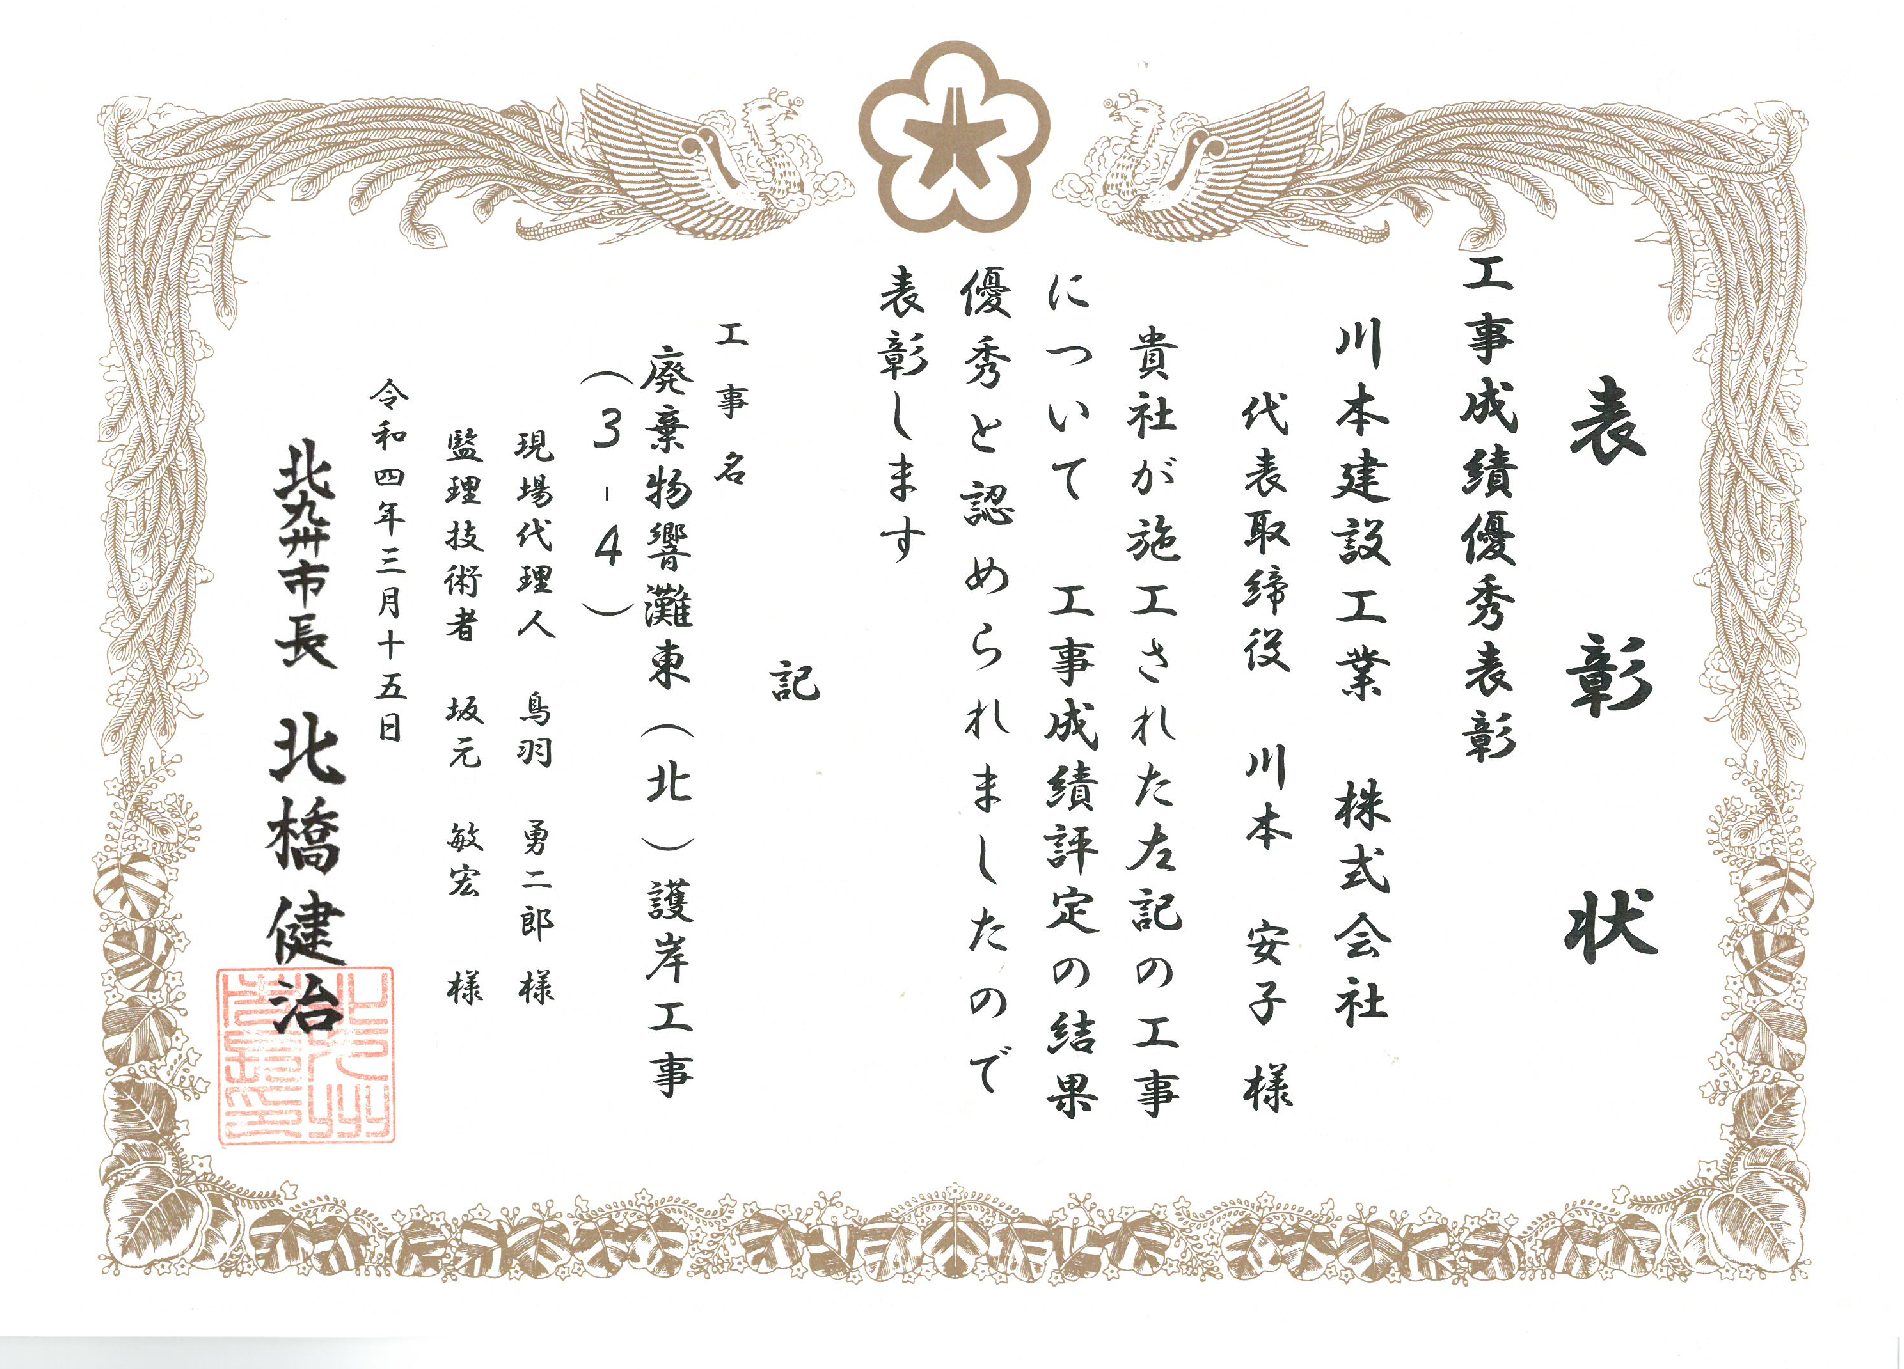 表彰状
工事成績優秀表彰
川本建設工業 株式会社
代表取締役 川本 安子 様
貴社が施工された左記の工事
について 工事成績評定の結果
優秀と認められましたので
表彰します
記
工事名
廃棄物響灘東(北)護岸工事
(3-4)
現場代理人 鳥羽 勇二郎 様
監理技術者 坂元 敏宏 様
令和四年三月十五日
北九州市長 北橋 健治